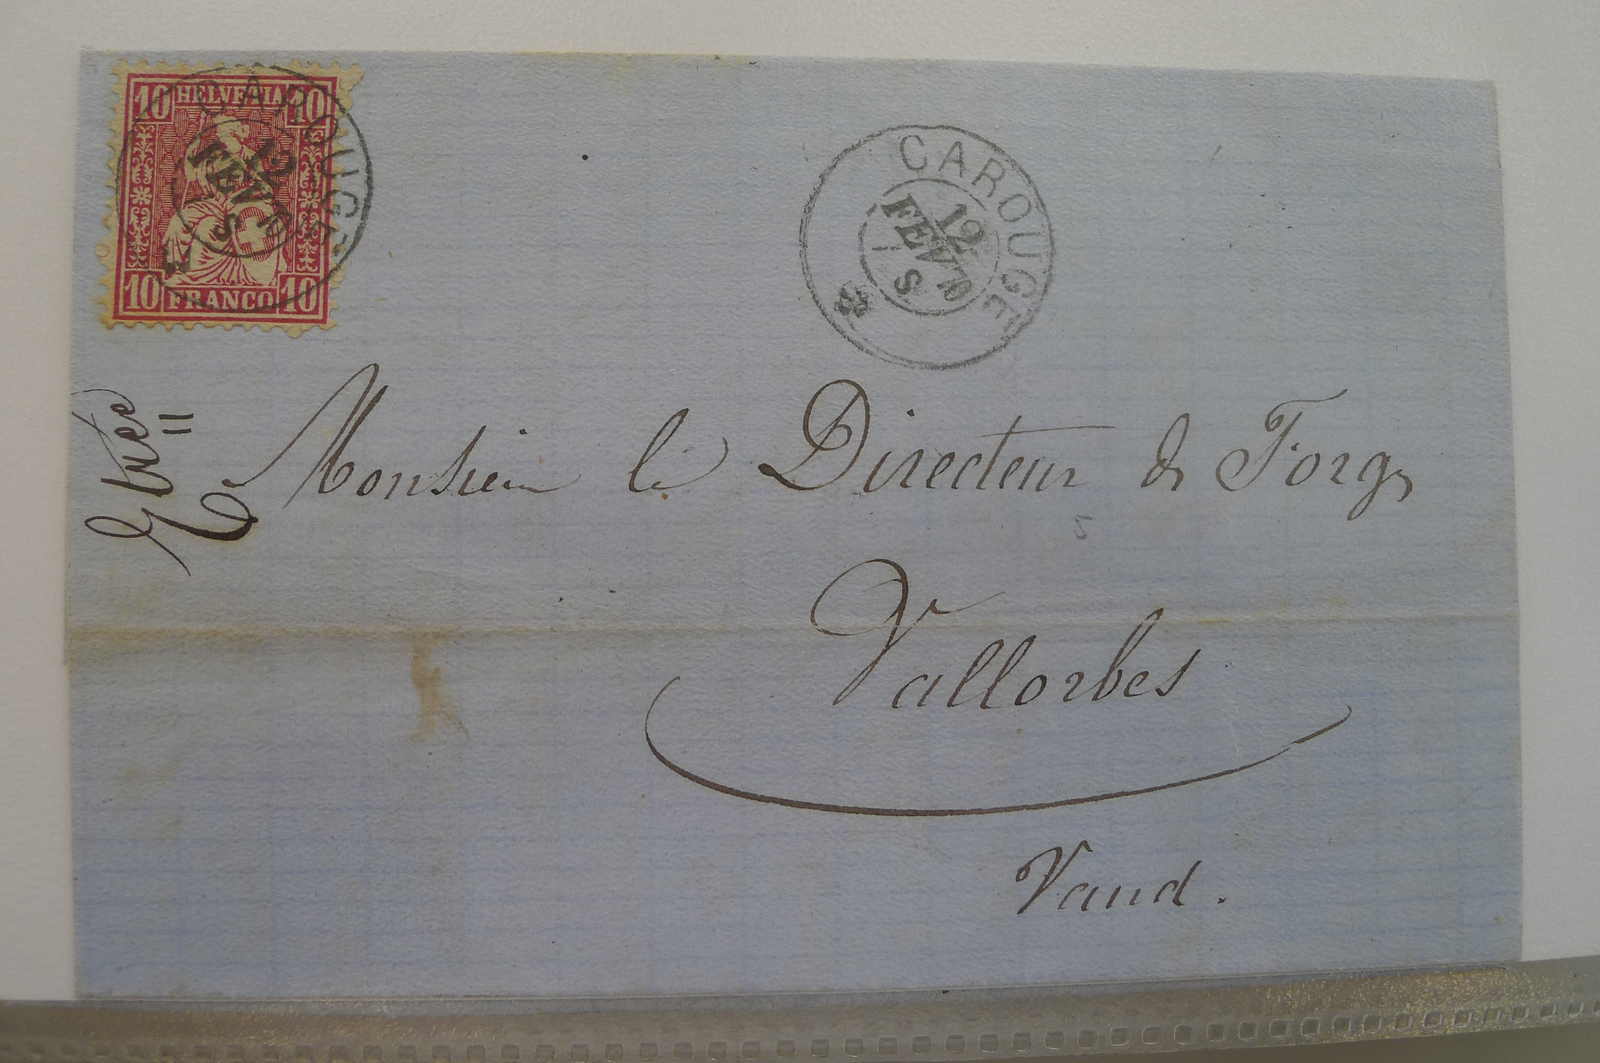 10 HELVETIA 10
10 FRANCO 10
CAROUGE
12
FEV 70
S
CAROUGE
12
FEV 70
S
Monsieur le Directeur de Forges
Vallorbes
Vaud.